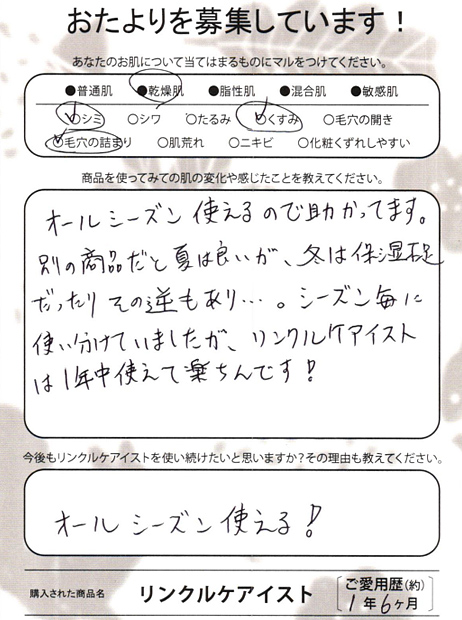 おたよりを募集しています！
あなたのお肌について当てはまるものにマルをつけてください。
●普通肌 ●乾燥肌 ●脂性肌 ●混合肌 ●敏感肌
○シミ ○シワ ○たるみ ○くすみ ○毛穴の開き
○毛穴の詰まり ○肌荒れ ○ニキビ ○化粧くずれしやすい
商品を使ってみての肌の変化や感じたことを教えてください。
オールシーズン使えるので助かってます。
別の商品だと夏は良いが、冬は保湿不足
だったりその逆もあり…。シーズン毎に
使い分けていましたが、リンクルケアイスト
は1年中使えて楽ちんです！
今後もリンクルケアイストを使い続けたいと思いますか？その理由も教えてください。
オールシーズン使える！
購入された商品名 リンクルケアイスト ご愛用歴(約)
1年6ヶ月